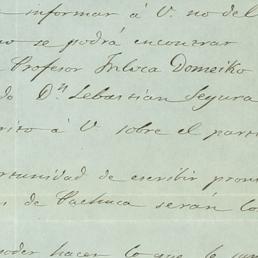 informar á V. no del
no se podrá encontrar
Profesor Inloca Domeiko
do Dn Sebastian Segura
á V sobre el par
portunidad de escribir pron
de Pachuca serán lo
poder hacer lo que le